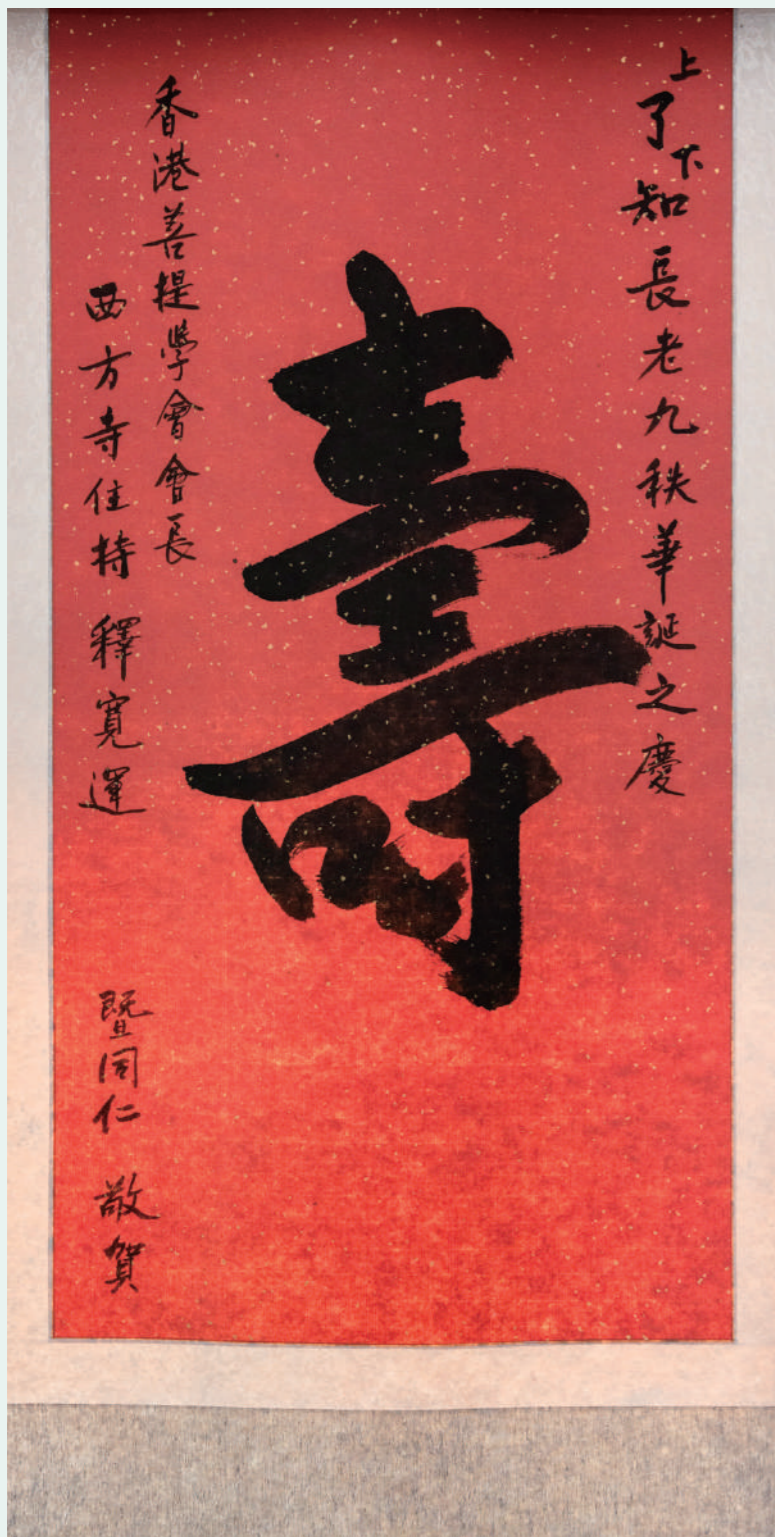 上了下知長老九秩華誕之慶
壽
香港菩提學會會長
西方寺住持 釋寬運
暨同仁 敬賀